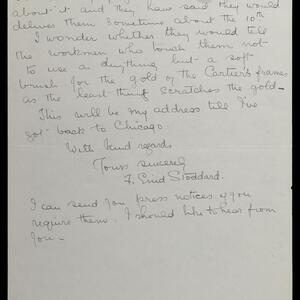 about it and they have said they would
deliver them sometime about the 10th
I wonder whether they would tell
the workmen who touch them not
to use a anything but a soft
brush for the gold of the Cartier's frames
as the least thing scratches the gold –
This will be my address till I've
got back to Chicago.
With kind regards
Yours sincerely
F. Enid Stoddard.
I can send you press notices if you
require them. I should like to hear from
you –